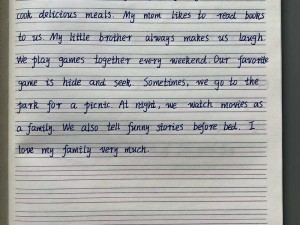 cook delicious meals. My mom likes to read books
to us. My little brother always makes us laugh.
We play games together every weekend. Our favorite
game is hide and seek. Sometimes, we go to the
park for a picnic. At night, we watch movies as
a family. We also tell funny stories before bed. I
love my family very much.